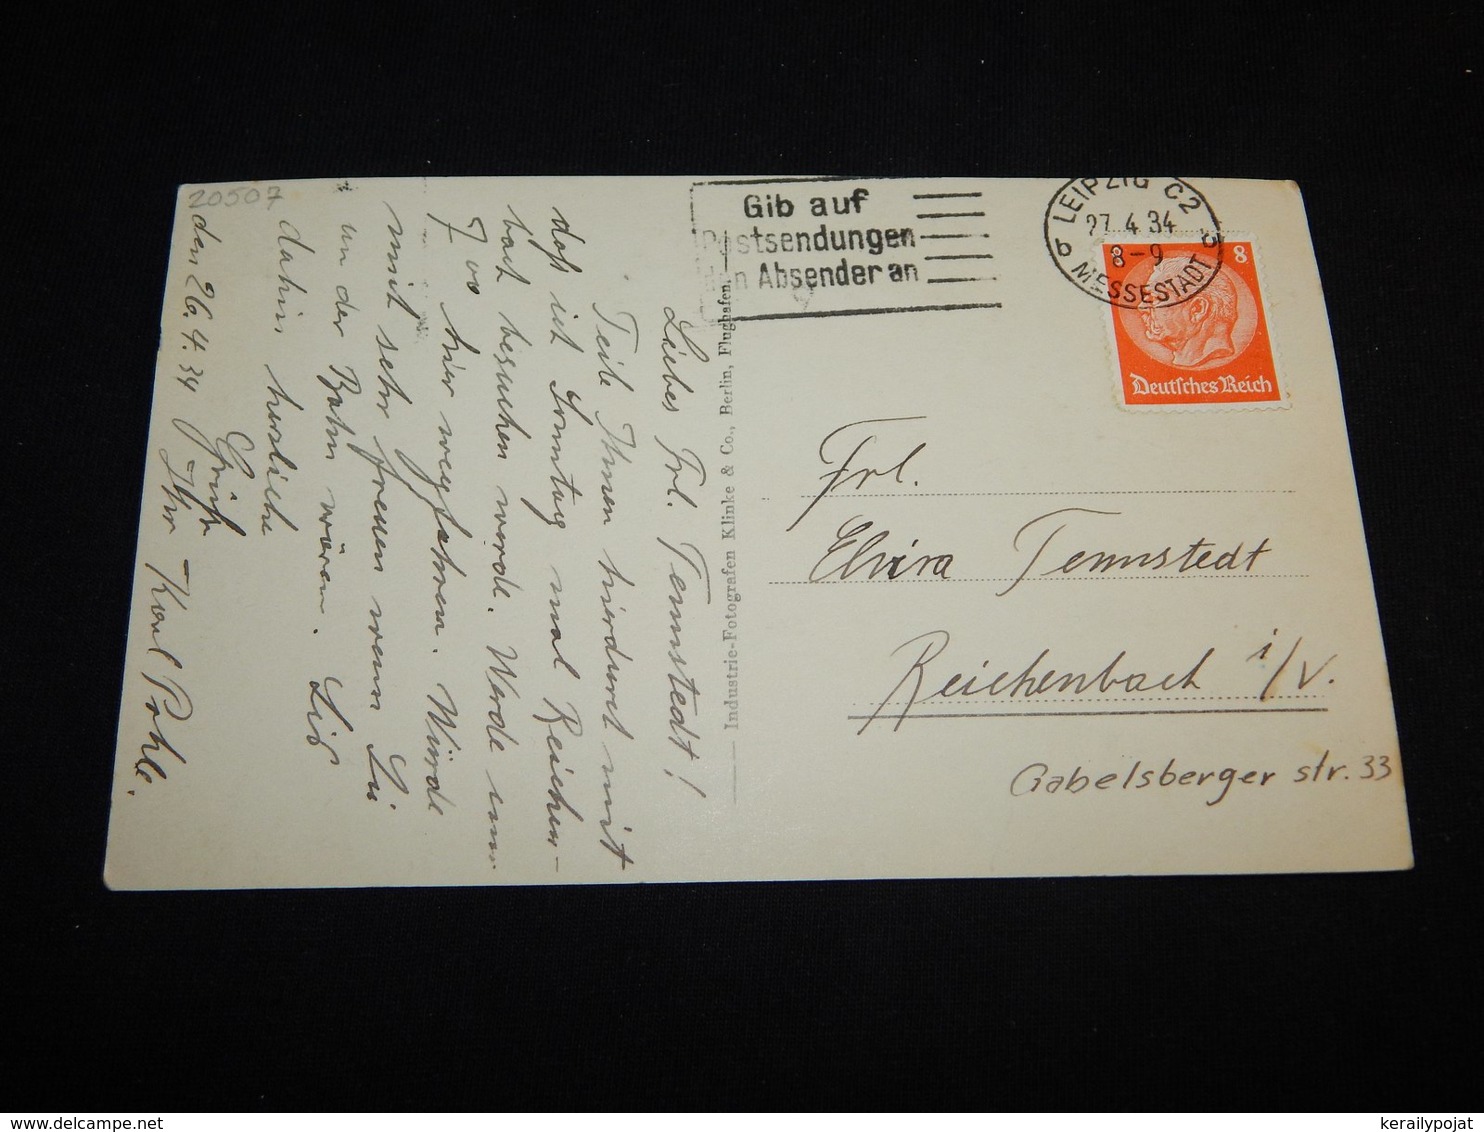 20507
Gib auf
Postsendungen
den Absender an
LEIPZIG C2
27.4.34
8-9
b b
MESSESTADT
8
Deutsches Reich
Frl.
Elvira Tennstedt
Reichenbach i/V.
Gabelsberger str. 33
Industrie-Fotografen Klinke & Co., Berlin, Flughafen.
den 26.4.34
Liebes Frl. Tennstedt!
Teile Ihnen hierdurch mit
daß ich Sonntag mal Reichen-
bach besuchen werde. Werde um
7 00 hier wegfahren. Würde
mich sehr freuen wenn Sie
an der Bahn wären. Bis
dahin herzliche
Grüße
Ihr Karl Pohle.
kerailypojat
www.delcampe.net